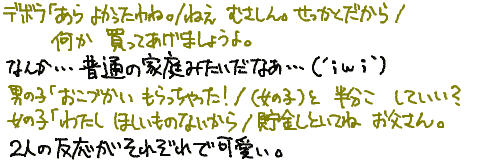 デボラ「あら よかったわね。/ねえ むさしん。せっかくだから/
何か 買ってあげましょうよ。
なんか…普通の家庭みたいだなあ…(´；ω；｀)
男の子「おこづかい もらっちゃった!/(女の子)と 半分こ していい?
女の子「わたし ほしいものないから/貯金しといてね お父さん。
2人の反応がそれぞれで可愛い。